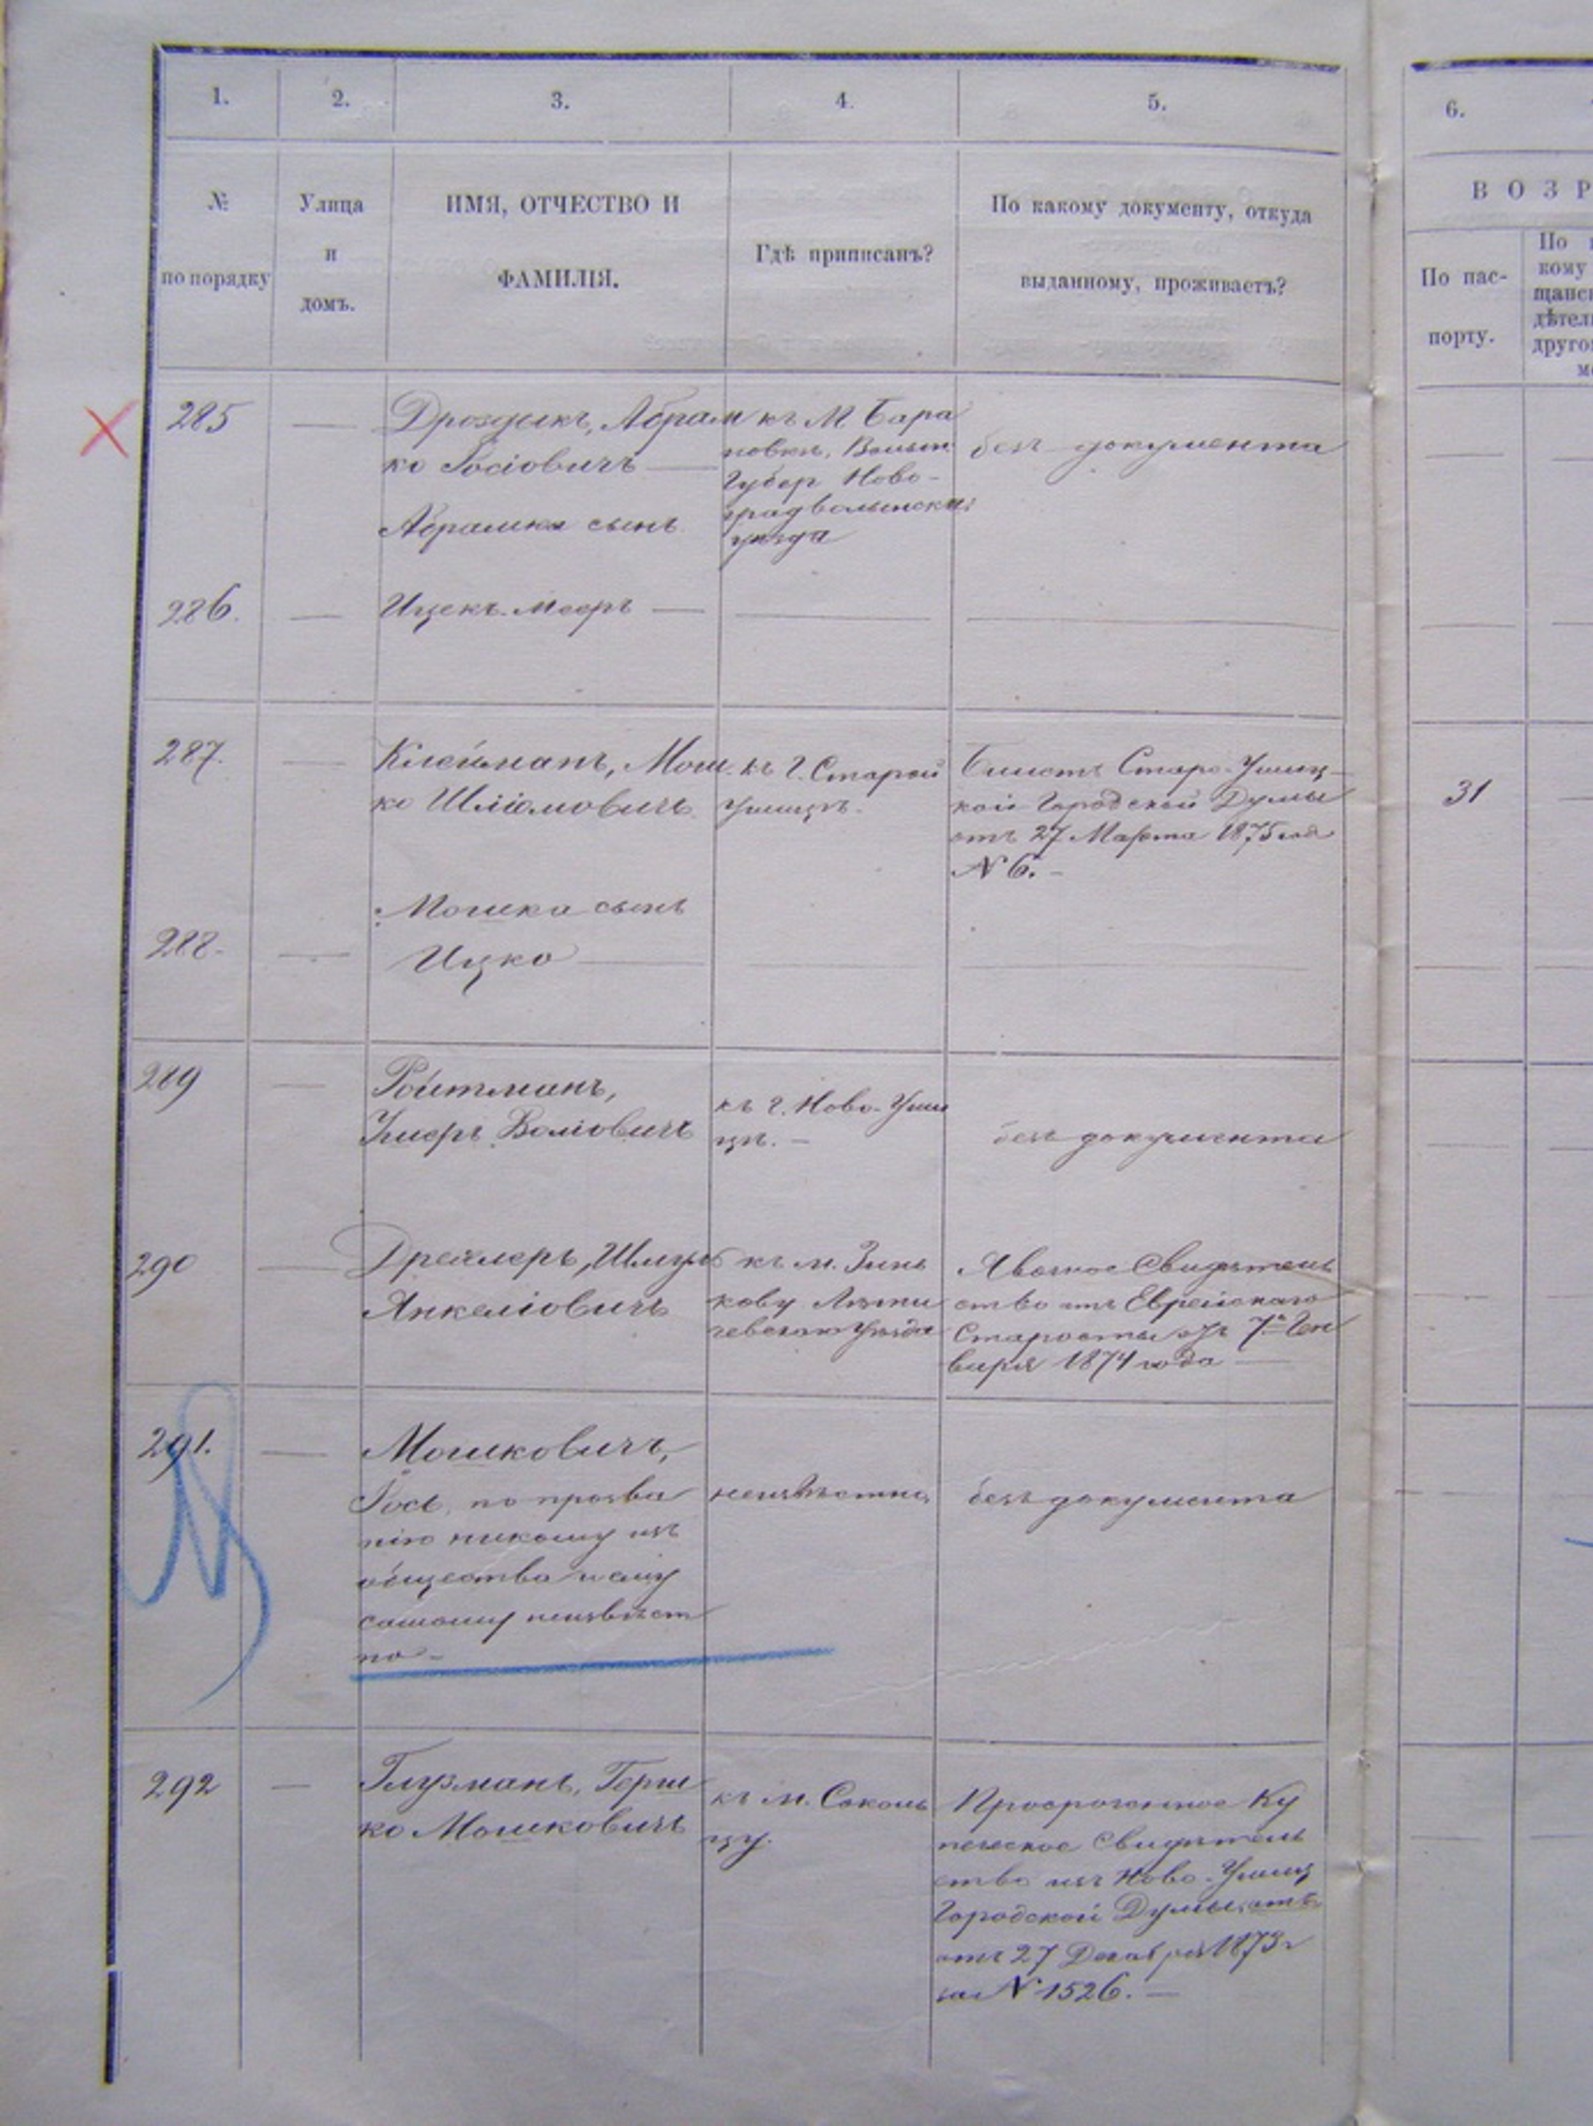 1. 2. 3. 4. 5. 6.
№ по порядку
Улица и домъ.
ИМЯ, ОТЧЕСТВО И ФАМИЛІЯ.
Гдѣ приписанъ?
По какому документу, откуда
выданному, проживаетъ?
ВОЗР
По пас-
порту.
По
кому
щанс
дѣтел
друго
285 — Дроздикъ, Абрам
ко Іосіовичъ —
къ М Бара
новкѣ, Волын
Губер Ново-
градволынска
уѣзда
безъ документа
Абрамка сынъ
286. — Ицекъ-Меэръ —
287. — Клейманъ, Мош
ко Шліомовичъ.
къ г. Старой
Ушицѣ.
Билетъ Старо-Ушиц-
кой Городской Думы
отъ 27 Марта 1875 год
N 6. -
31
Мошка сынъ
288. — Ицко —
289 — Ройтманъ,
Умеръ Воліовичъ
къ г. Ново-Уши
цѣ. -
безъ документа
290 — Дрекслеръ, Шмуль
Янкеліовичъ
къ м. Зинь
кову Лѣти
чевскаго уѣзда
Явочное Свидѣтель
ство отъ Еврейскаго
Старосты отъ 7го Ген
варя 1874 года —
291. — Мошковичъ,
Іось, по прозва
нію никому изъ
общества и ему
самому неизвѣст
но -
неизвѣстно
безъ документа
292 — Глузманъ, Герш
ко Мошковичъ
къ м. Соколь
цу.
Просроченное Ку
печеское Свидѣтель
ство изъ Ново-Ушиц
Городской Думы, отъ
отъ 27 Декабря 1873 г
за N 1526. —